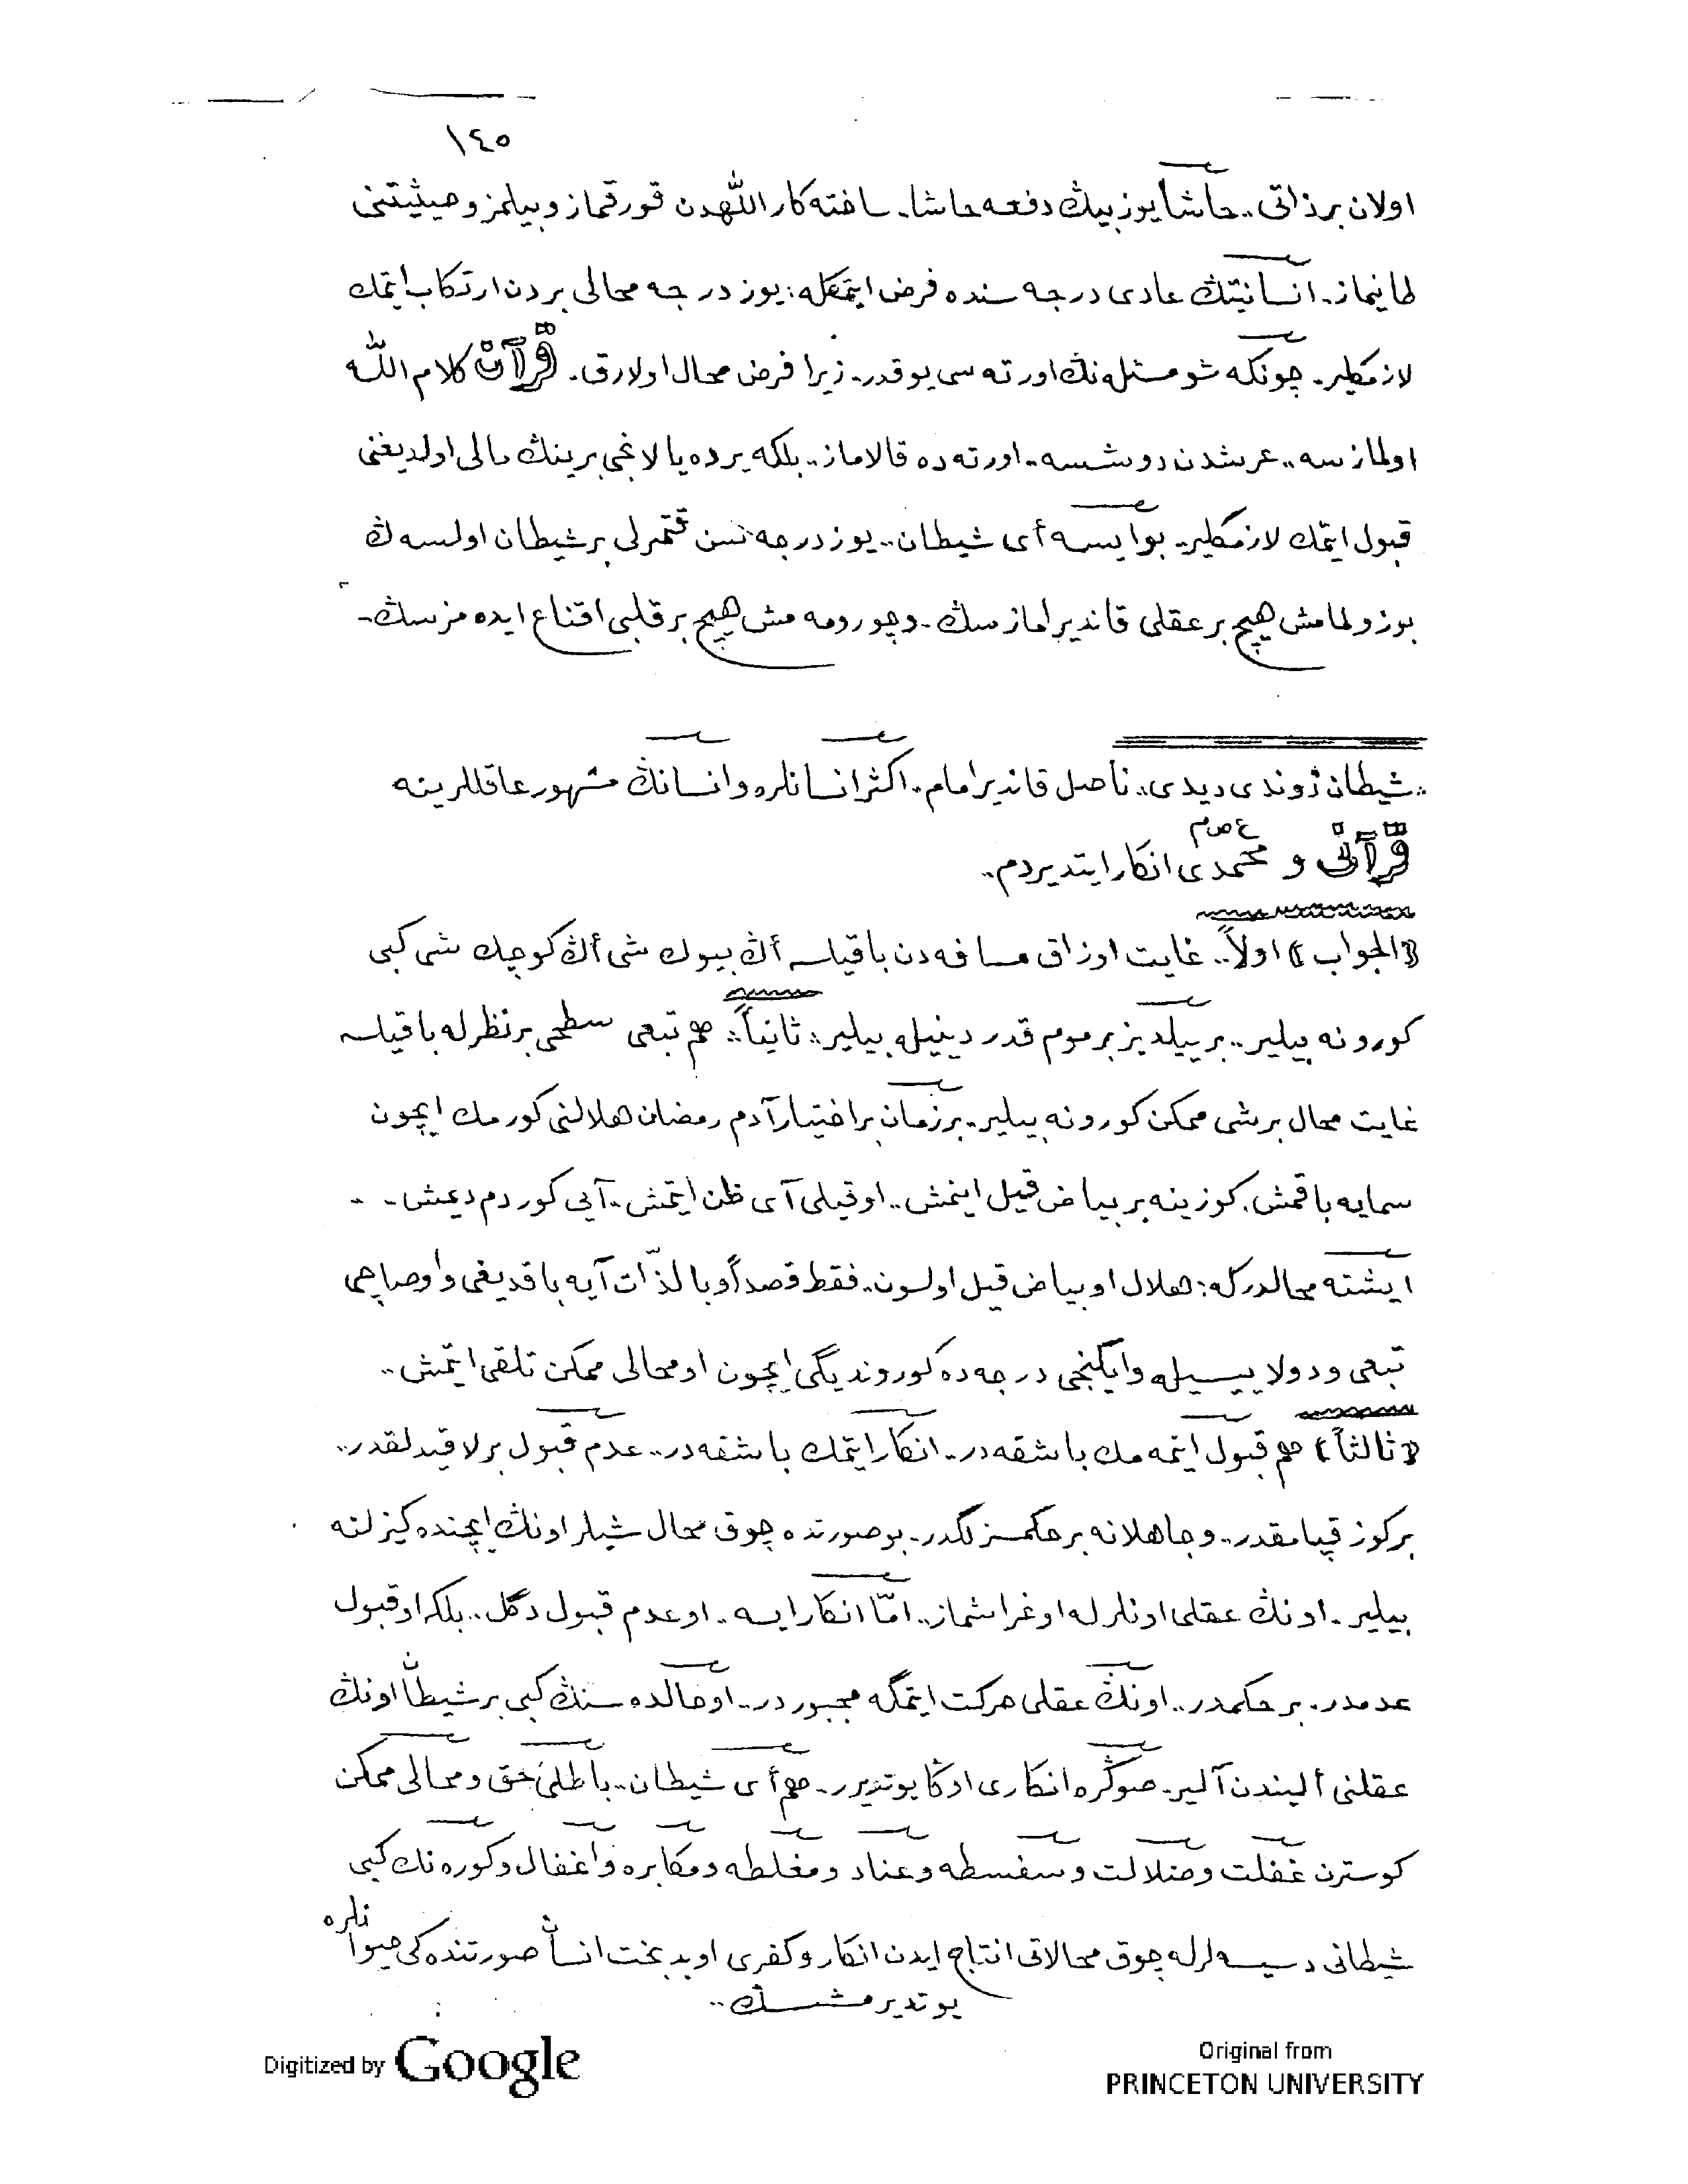 ١٤٥
اولان بر ذاتی.. حاشا يوز بيڭ دفعه حاشا. ساخته كار اللهدن قورقماز و بيلمز و حيثيتنی
طانيماز. انسانيتڭ عادی درجه سنده فرض ايتمكله: يوز درجه محالی بردن ارتكاب ايتمك
لازمكلير. چونكه شو مسئله نڭ اورته سی يوقدر. زيرا فرض محال اولارق. قرآن كلام الله
اولمازسه.. عرشدن دوشسه.. اورته ده قالاماز.. بلكه يرده يالانجی برينڭ مالی اولديغنی
قبول ايتمك لازمكلير. بو ايسه أی شيطان.. يوز درجه سن قتمرلی بر شيطان اولسه ڭ
بوزولمامش هيچ بر عقلی قانديرامازسڭ. و چورومه مش هيچ بر قلبی اقناع ايده مزسڭ.
شيطان دوندی ديدی.. ناصل قانديرامام. اكثر انسانلره و انسانڭ مشهور عاقللرينه
قرآنی و محمدی ع ص م انكار ايتديردم..
﴿الجواب﴾ اولاً.. غايت اوزاق مسافه دن باقيلسه أڭ بيوك شی أڭ كوچك شی كبی
كورونه بيلير.. بر ييلديز بر موم قدر دينيله بيلير: ثانياً: هم تبعی سطحی بر نظرله باقيلسه
غايت محال بر شی ممكن كورونه بيلير. بر زمان بر اختيار آدم رمضان هلالنی كورمك ايچون
سمايه باقمش. كوزينه بر بياض قيل اينمش.. او قيلی آی ظن ايتمش. آيی كوردم ديمش..
ايشته محالدركه: هلال او بياض قيل اولسون. فقط قصداً و بالذات آيه باقديغی و او صاچی
تبعی و دولاييسيله و ايكنجی درجه ده كورونديگی ايچون او محالی ممكن تلقی ايتمش..
﴿ثالثاً﴾ هم قبول ايتمه مك باشقه در. انكار ايتمك باشقه در.. عدم قبول بر لاقيدلقدر..
بر كوز قپامقدر.. و جاهلانه بر حكمسزلگدر. بو صورتده چوق محال شيلر اونڭ ايچنده كيزلنه
بيلير. اونڭ عقلی اونلرله اوغراشماز.. امّا انكار ايسه.. او عدم قبول دگل.. بلكه او قبول
عدمدر. بر حكمدر.. اونڭ عقلی حركت ايتمگه مجبوردر. او حالده سنڭ كبی بر شيطان اونڭ
عقلنی ألندن آلير. صوڭره انكاری اوڭا يوتديرر. هم أی شيطان.. باطلی حق و محالی ممكن
كوسترن غفلت و ضلالت و سفسطه و عناد و مغلطه و مكابره و اغفال و كوره نك كبی
شيطانی دسيسه لرله چوق محالاتی انتاج ايدن انكار و كفری او بدبخت انسان صورتنده كی حيوانلره
يوتديرمشسڭ..
Digitized by Google
Original from
PRINCETON UNIVERSITY